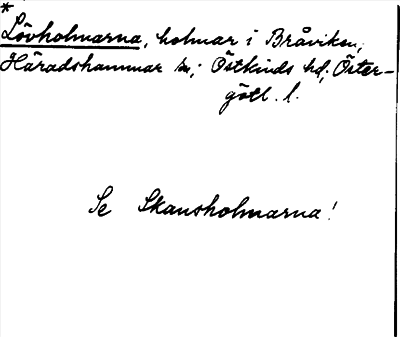 *
Lövholmarna, holmar i Bråviken,
Häradshammar sn; Östkinds hd, Öster-
götl. l.
Se Skansholmarna!